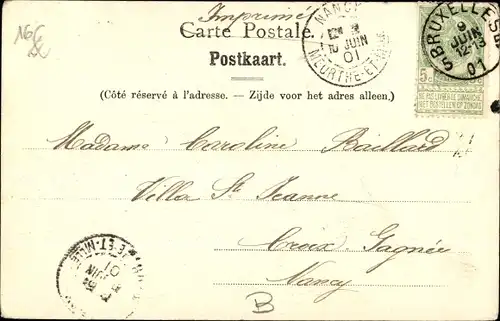 16C
Imprimé
Carte Postale.
Postkaart.
(Côté réservé à l'adresse. – Zijde voor het adres alleen.)
NANCY
10 JUIN
01
MEURTHE-ET-M
BRUXELLES 5
9
JUIN
12-13
01
5c
NE PAS LIVRER LE DIMANCHE
NIET BESTELLEN OP ZONDAG
Madame Caroline Baillard
Villa Ste Jeanne
Croix Gagnée
Nancy
B
E-ET-M
JUIN
01